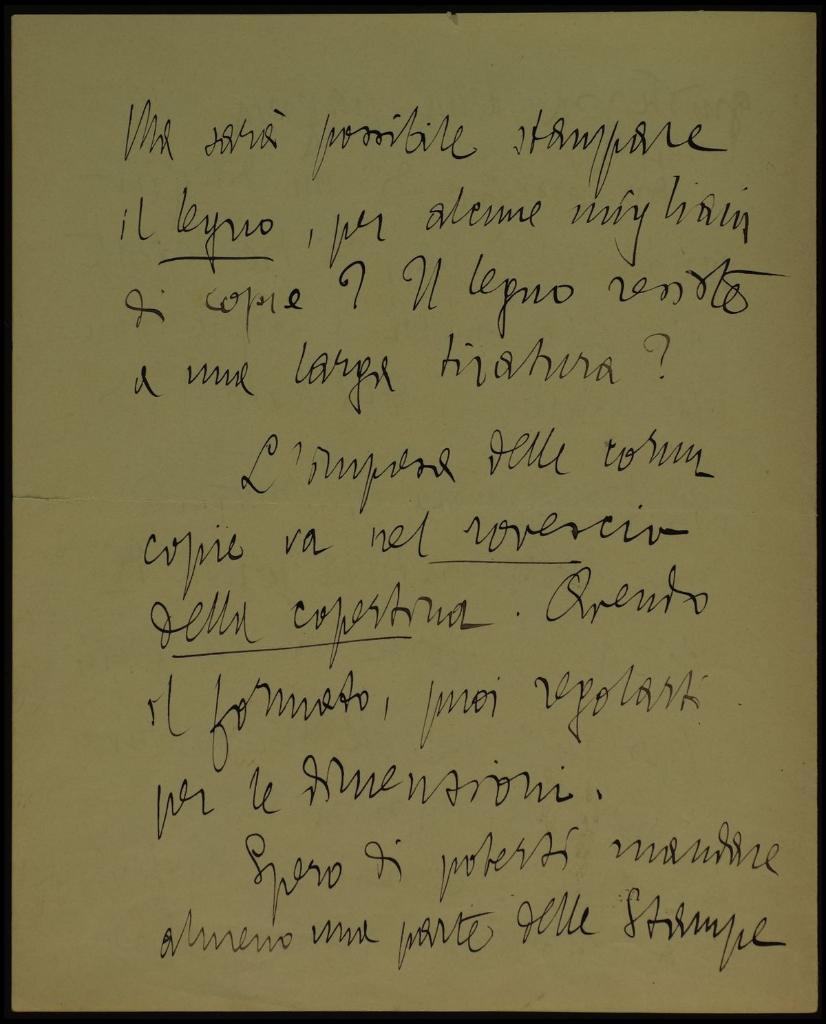 Ma sarà possibile stampare
il legno, per alcune migliaia
di copie? Il legno resiste
a una larga tiratura?
L'impresa delle cornu
copie va nel rovescio
della copertina. Avendo
il formato, puoi regolarti
per le dimensioni.
Spero di poterti mandare
almeno una parte delle Stampe